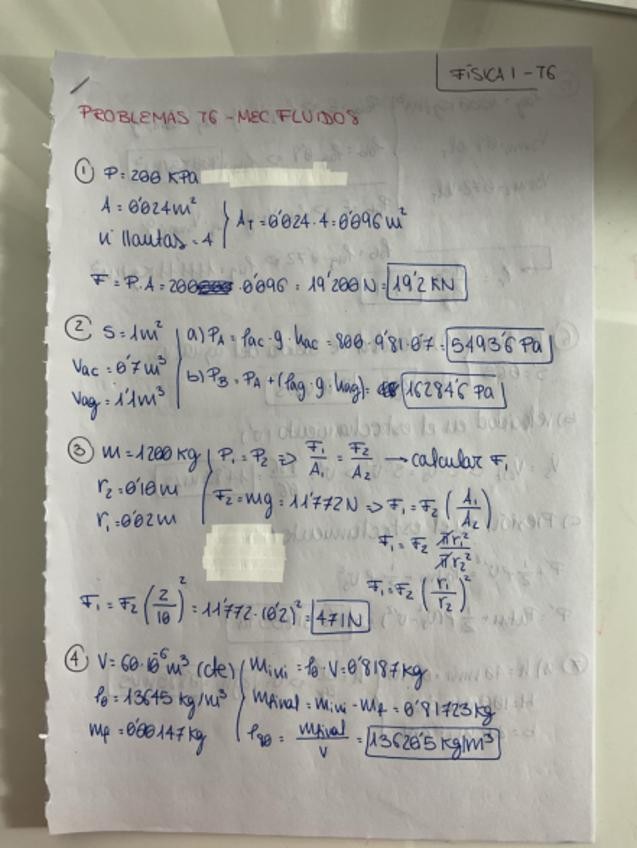 FÍSICA I - T6
PROBLEMAS T6 - MEC. FLUIDOS
① P = 200 KPa
A = 0'024 m²
nº llantas = 4
A_T = 0'024 · 4 = 0'096 m²
F = P · A = 200 · 0'096 = 19'200 N = 19'2 KN
② S = 1 m²
Vac = 0'7 m³
Vag = 1'1 m³
a) P_A = ρac · g · hac = 800 · 9'81 · 0'7 = 5493'6 Pa
b) P_B = P_A + (ρag · g · hag) = 16284'6 Pa
③ m = 1200 kg
r₂ = 0'10 m
r₁ = 0'02 m
P₁ = P₂ => F₁/A₁ = F₂/A₂ → calcular F₁
F₂ = mg = 11'772 N => F₁ = F₂ (A₁/A₂)
F₁ = F₂ πr₁²/πr₂²
F₁ = F₂ (r₁/r₂)²
F₁ = F₂ (2/10)² = 11'772 · (0'2)² = 471 N
④ V = 60·10⁻⁶ m³ (cte)
ρ₀ = 13645 kg/m³
mf = 0'00147 kg
mini = ρ₀ · V = 0'8187 kg
mfinal = mini - mf = 0'81723 kg
ρ₈₀ = mfinal/V = 13620'5 kg/m³